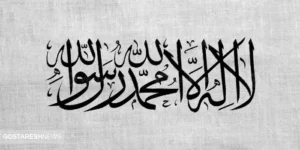 لا اله الا الله محمد رسول الله
GOSTARESHNEWS